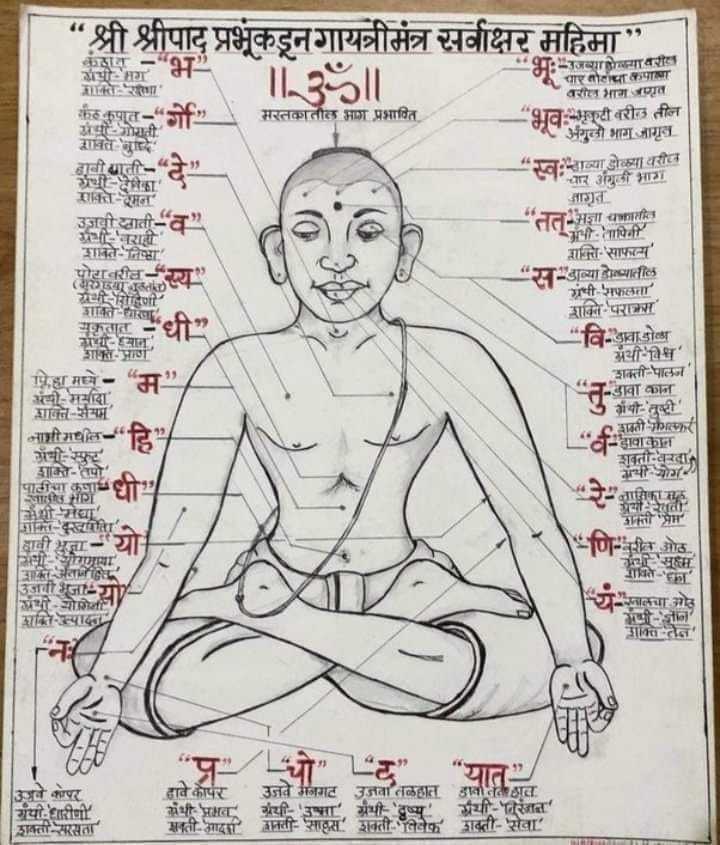 “ श्री श्रीपाद प्रभूंकडून गायत्रीमंत्र सर्वाक्षर महिमा ”
॥ॐ॥
मस्तकातील भाग प्रभावित
कंठात - “भ”
ग्रंथी - भग
शक्ति - रक्षणा
कंठ कुपात - “र्गो”
ग्रंथी - गोमती
शक्ति - बुद्धि
डावी छाती - “दे”
ग्रंथी - देविका
शक्ति - दमन
उजवी छाती - “व”
ग्रंथी - वराही
शक्ति - निष्ठा
पोटावरील - “स्य”
शक्ति - धारणा
यकृतात - “धी”
ग्रंथी - ध्यान
शक्ति - प्राण
मध्ये - “म”
ग्रंथी - मर्यादा
शक्ति - संयम
नाभी मधील - “हि”
ग्रंथी - स्फुट
शक्ति - तपो
पाठीचा कणा - “धी”
खालील भाग
ग्रंथी - मेधा
डावी भूजा - “यो”
ग्रंथी - योगमाया
उजवी भूजा - “यो”
ग्रंथी - योगिनी
शक्ति - उत्पादन
“नः”
उजवे कोपर
ग्रंथी - धारीणी
शक्ती - सरसता
“भूः” - उजव्या डोळ्या वरील
चार बोटांचा कपाळा
वरील भाग जागृत
“भूवः” - भृकुटी वरील तीन
अंगुळी भाग जागृत
“स्वः” - डाव्या डोळ्या वरील
चार अंगुळी भाग
जागृत
“तत्” - आज्ञा चक्रातील
ग्रंथी - तापिनी
शक्ति - साफल्य
“स” - डाव्या डोळ्यातील
ग्रंथी - सफलता
शक्ति - पराक्रम
“वि” - डावा डोळा
ग्रंथी - विश्व
शक्ती - पालन
“तु” - डावा कान
ग्रंथी - तुष्टी
शक्ती
“र्व” - डावा कान
शक्ती - वरदा
ग्रंथी - योग
“रे” - नासिका मूळ
ग्रंथी - रेवती
शक्ती - प्रेम
“णि” - वरील ओठ
ग्रंथी - सूक्ष्म
शक्ति - धन
“यं” - खालचा ओठ
ग्रंथी - ज्ञान
शक्ति - तेज
“प्र” “चो” “द” “यात्”
डावे कोपर उजवे मनगट उजवा तळहात डावा तळहात
ग्रंथी - प्रभव ग्रंथी - उष्मा ग्रंथी - दृष्य ग्रंथी - निरंजन
शक्ती - आदर्श शक्ती - साहस शक्ती - विवेक शक्ती - सेवा